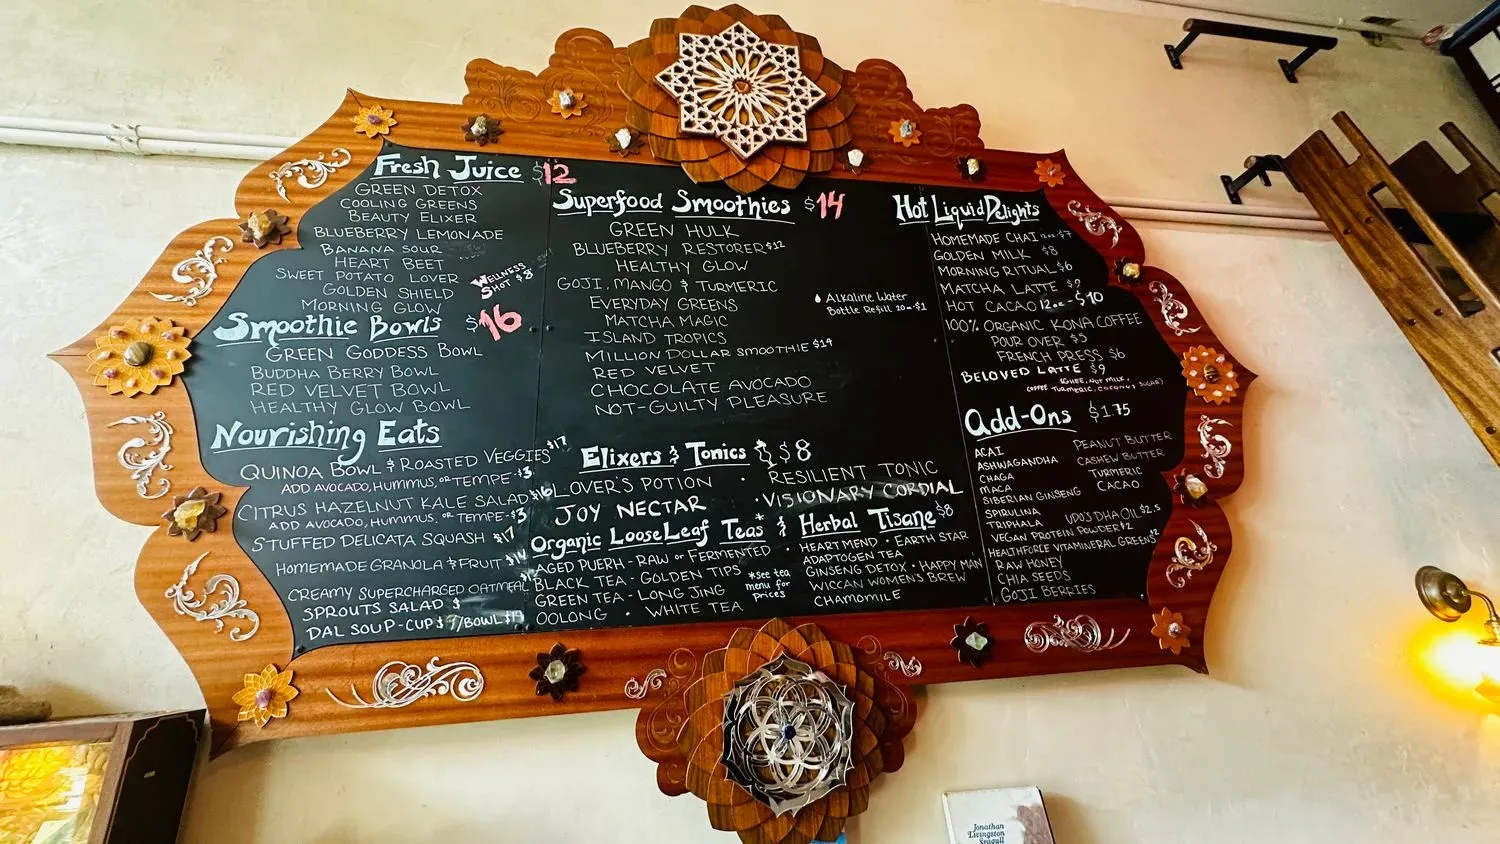 Fresh Juice $12
GREEN DETOX
COOLING GREENS
BEAUTY ELIXER
BLUEBERRY LEMONADE
BANANA SOUR
HEART BEET
SWEET POTATO LOVER
GOLDEN SHIELD
MORNING GLOW
WELLNESS
SHOT $8
Smoothie Bowls $16
GREEN GODDESS BOWL
BUDDHA BERRY BOWL
RED VELVET BOWL
HEALTHY GLOW BOWL
Nourishing Eats
QUINOA BOWL & ROASTED VEGGIES $17
ADD AVOCADO, HUMMUS, OR TEMPE-$3
CITRUS HAZELNUT KALE SALAD $16
ADD AVOCADO, HUMMUS, OR TEMPE-$3
STUFFED DELICATA SQUASH $17
HOMEMADE GRANOLA & FRUIT
CREAMY SUPERCHARGED OATMEAL
SPROUTS SALAD $
DAL SOUP-CUP $9/BOWL
Superfood Smoothies $14
GREEN HULK
BLUEBERRY RESTORER $12
HEALTHY GLOW
GOJI, MANGO & TURMERIC
EVERYDAY GREENS
MATCHA MAGIC
ISLAND TROPICS
MILLION DOLLAR SMOOTHIE $19
RED VELVET
CHOCOLATE AVOCADO
NOT-GUILTY PLEASURE
Alkaline Water
Bottle Refill 20oz-$1
Elixers & Tonics $8
LOVER'S POTION · RESILIENT TONIC
JOY NECTAR · VISIONARY CORDIAL
Organic LooseLeaf Teas* & Herbal Tisane $8
AGED PUERH-RAW or FERMENTED
BLACK TEA-GOLDEN TIPS
GREEN TEA-LONG JING
OOLONG · WHITE TEA
*see tea
menu for
prices
· HEARTMEND · EARTH STAR
ADAPTOGEN TEA
GINSENG DETOX · HAPPY MAN
WICCAN WOMEN'S BREW
CHAMOMILE
Hot Liquid Delights
HOMEMADE CHAI 12oz-$7
GOLDEN MILK $8
MORNING RITUAL $6
MATCHA LATTE $9
HOT CACAO 12oz-$10
100% ORGANIC KONA COFFEE
POUR OVER $5
FRENCH PRESS $6
BELOVED LATTE $9
(GHEE, NUT MILK,
COFFEE TURMERIC, COCONUT SUGAR)
Add-Ons $1.75
ACAI
ASHWAGANDHA
CHAGA
MACA
SIBERIAN GINSENG
SPIRULINA
TRIPHALA
PEANUT BUTTER
CASHEW BUTTER
TURMERIC
CACAO
UDO'S DHA OIL $2.5
VEGAN PROTEIN POWDER $2
HEALTHFORCE VITAMINERAL GREENS $2
RAW HONEY
CHIA SEEDS
GOJI BERRIES
Jonathan
Livingston
Seagull